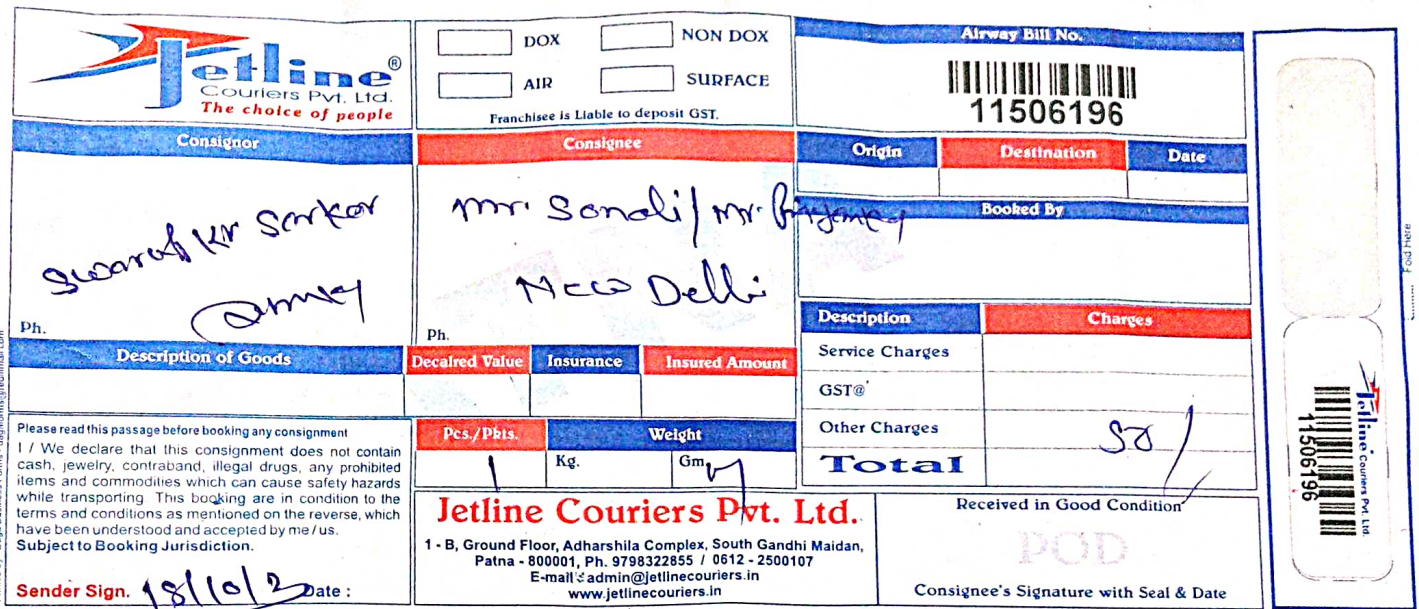 Jetline®
Couriers Pvt. Ltd.
The choice of people
DOX
NON DOX
AIR
SURFACE
Franchisee is Liable to deposit GST.
Airway Bill No.
11506196
Consignor
Consignee
Origin
Destination
Date
Kr Sarkar
Mr. Sonali / Mr. Priyanka
New Delhi
Ph.
Ph.
Booked By
Description of Goods
Decalred Value
Insurance
Insured Amount
Description
Charges
Service Charges
GST@
Other Charges
Total
50/
Please read this passage before booking any consignment
I / We declare that this consignment does not contain
cash, jewelry, contraband, illegal drugs, any prohibited
items and commodities which can cause safety hazards
while transporting. This booking are in condition to the
terms and conditions as mentioned on the reverse, which
have been understood and accepted by me / us.
Subject to Booking Jurisdiction.
Sender Sign.
18/10/2
Date :
Pcs./Pkts.
Weight
1
Kg.
Gm
Jetline Couriers Pvt. Ltd.
1 - B, Ground Floor, Adharshila Complex, South Gandhi Maidan,
Patna - 800001, Ph. 9798322855 / 0612 - 2500107
E-mail : admin@jetlinecouriers.in
www.jetlinecouriers.in
Received in Good Condition
POD
Consignee's Signature with Seal & Date
Fold Here
Jetline Couriers Pvt. Ltd.
11506196